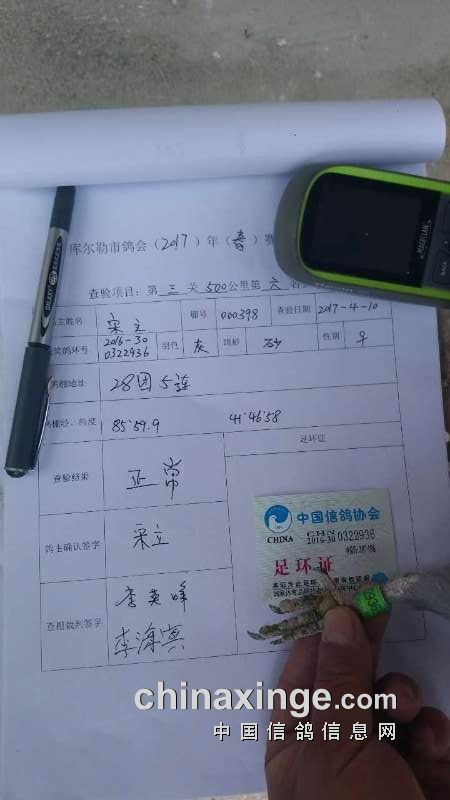 库尔勒市鸽会(2017)年(春)赛
查验项目:第 三 关 500公里第 六
主姓名 宋立 棚号 000398 查验日期 2017-4-10
鸽环号 2016-30 0322936 羽色 灰 眼砂 砂 性别 ♀
棚地址 28团5连
棚经、纬度 85°59.9 41°46'58
查验结果 正常 足环证
鸽主确认签字 宋立
查棚裁判签字 李英峰
李海宾
中国信鸽协会
CHINA CHN 2016-30 0322936
足环证
GALAXY
MAGELLAN
BACK
chinaxinge.com
中国信鸽信息网